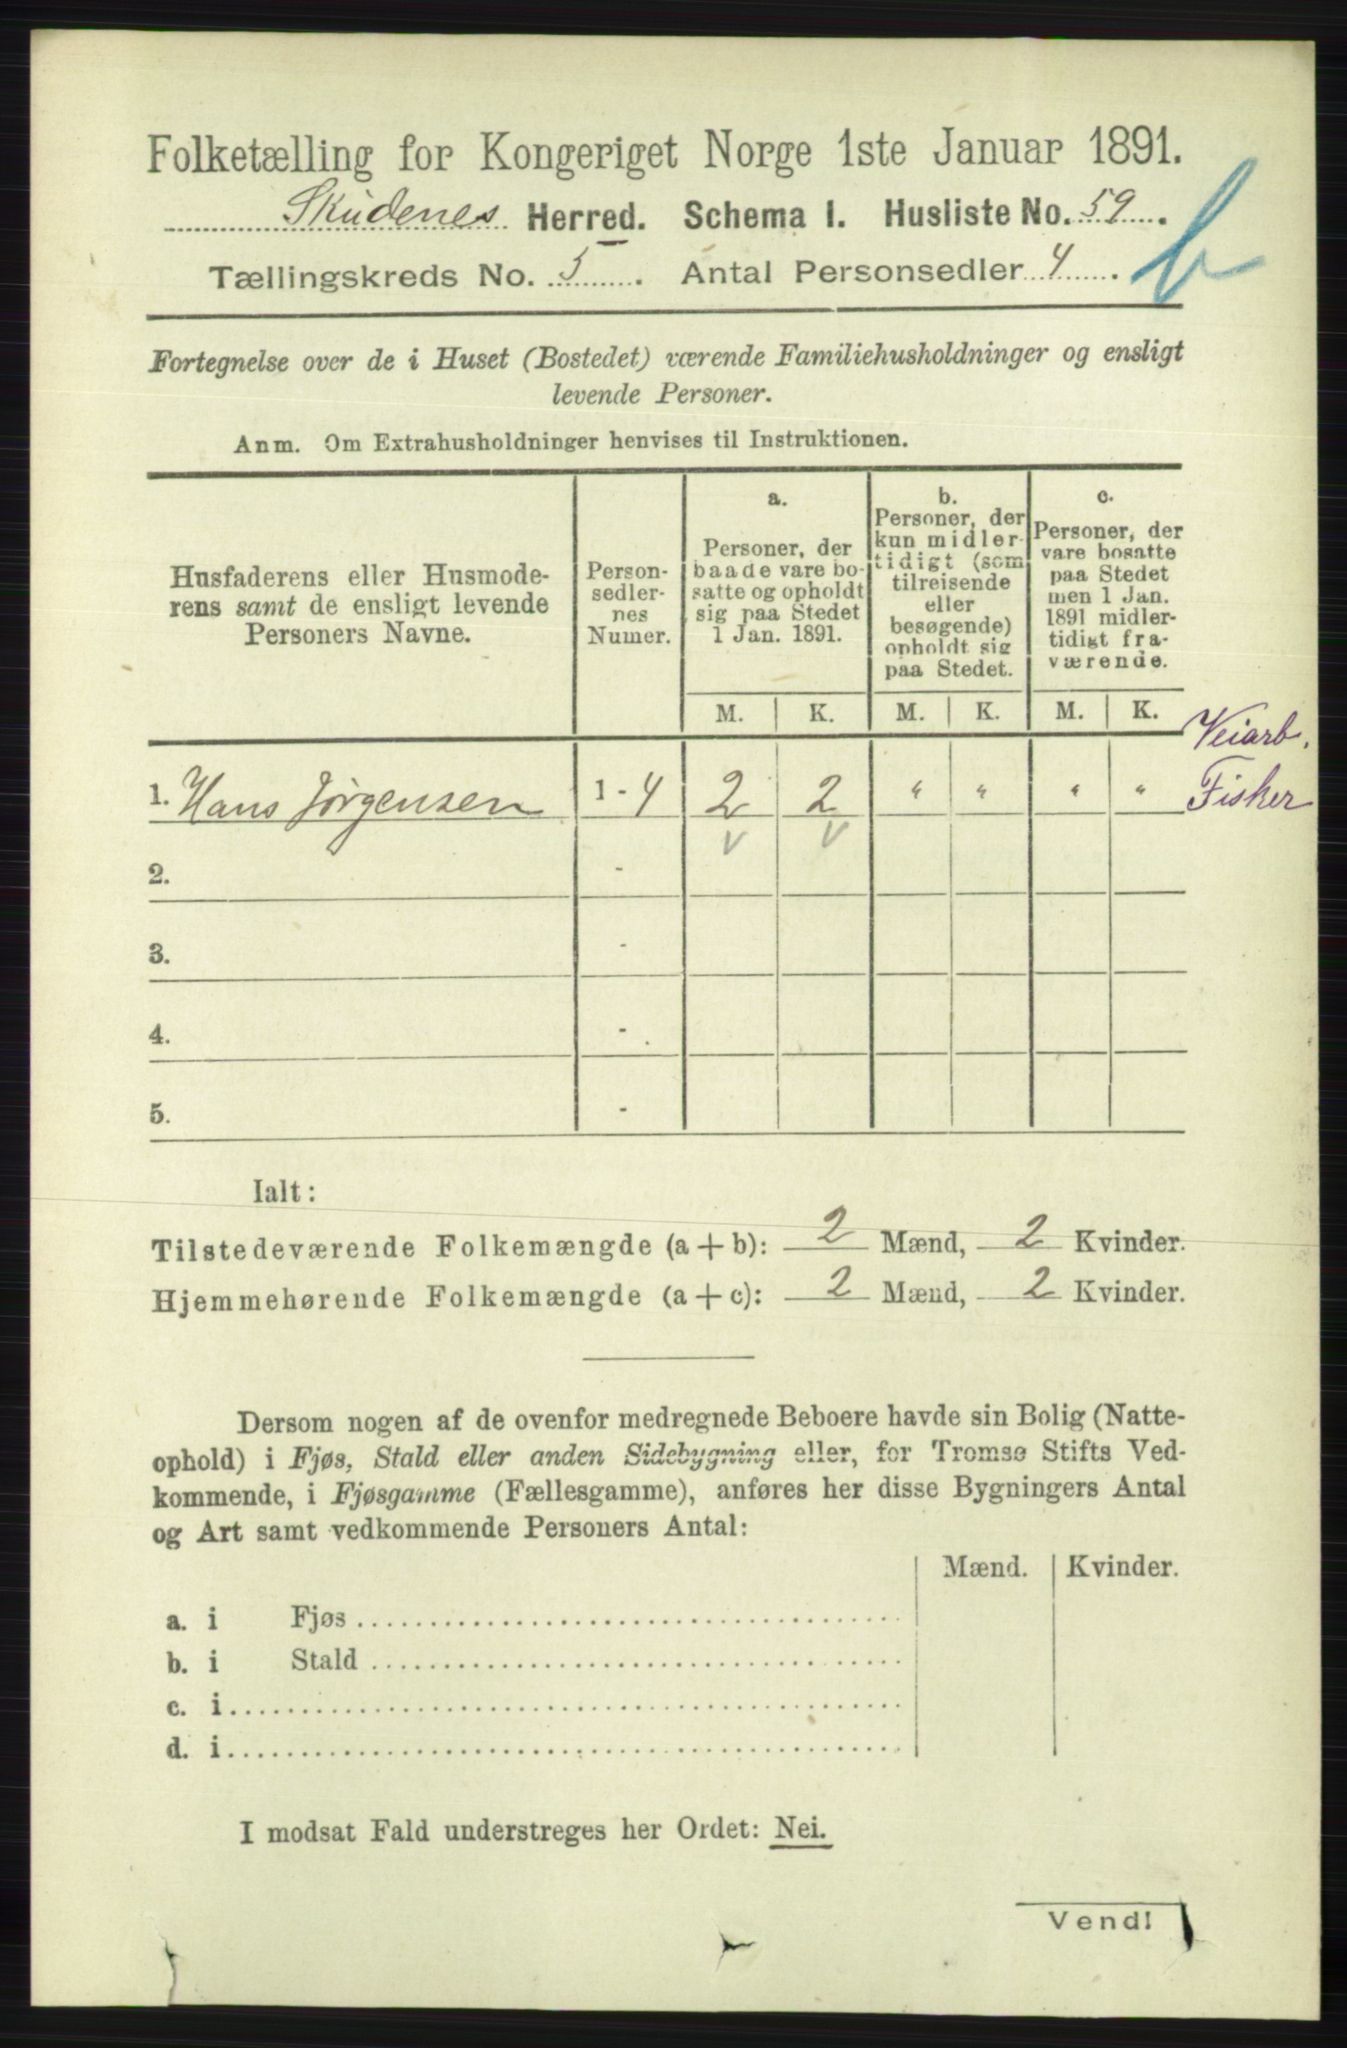 Folketælling for Kongeriget Norge 1ste Januar 1891.
Skudenes Herred. Schema I. Husliste No. 59.
Tællingskreds No. 5. Antal Personsedler 4.
b
Fortegnelse over de i Huset (Bostedet) værende Familiehusholdninger og ensligt
levende Personer.
Anm. Om Extrahusholdninger henvises til Instruktionen.
Husfaderens eller Husmode-
rens samt de ensligt levende
Personers Navne.
Person-
sedler-
nes
Numer.
a.
Personer, der
baade vare bo-
satte og opholdt
sig paa Stedet
1 Jan. 1891.
b.
Personer, der
kun midler-
tidigt (som
tilreisende
eller
besøgende)
opholdt sig
paa Stedet.
c.
Personer, der
vare bosatte
paa Stedet
men 1 Jan.
1891 midler-
tidigt fra-
værende.
M. K. M. K. M. K.
Veiarb.
1. Hans Jørgensen 1 - 4 2 2 " " " " Fisker
v v
2. -
3. -
4. -
5. -
Ialt:
Tilstedeværende Folkemængde (a + b): 2 Mænd, 2 Kvinder.
Hjemmehørende Folkemængde (a + c): 2 Mænd, 2 Kvinder.
Dersom nogen af de ovenfor medregnede Beboere havde sin Bolig (Natte-
ophold) i Fjøs, Stald eller anden Sidebygning eller, for Tromsø Stifts Ved-
kommende, i Fjøsgamme (Fællesgamme), anføres her disse Bygningers Antal
og Art samt vedkommende Personers Antal:
Mænd. Kvinder.
a. i Fjøs
b. i Stald
c. i
d. i
I modsat Fald understreges her Ordet: Nei.
Vend!